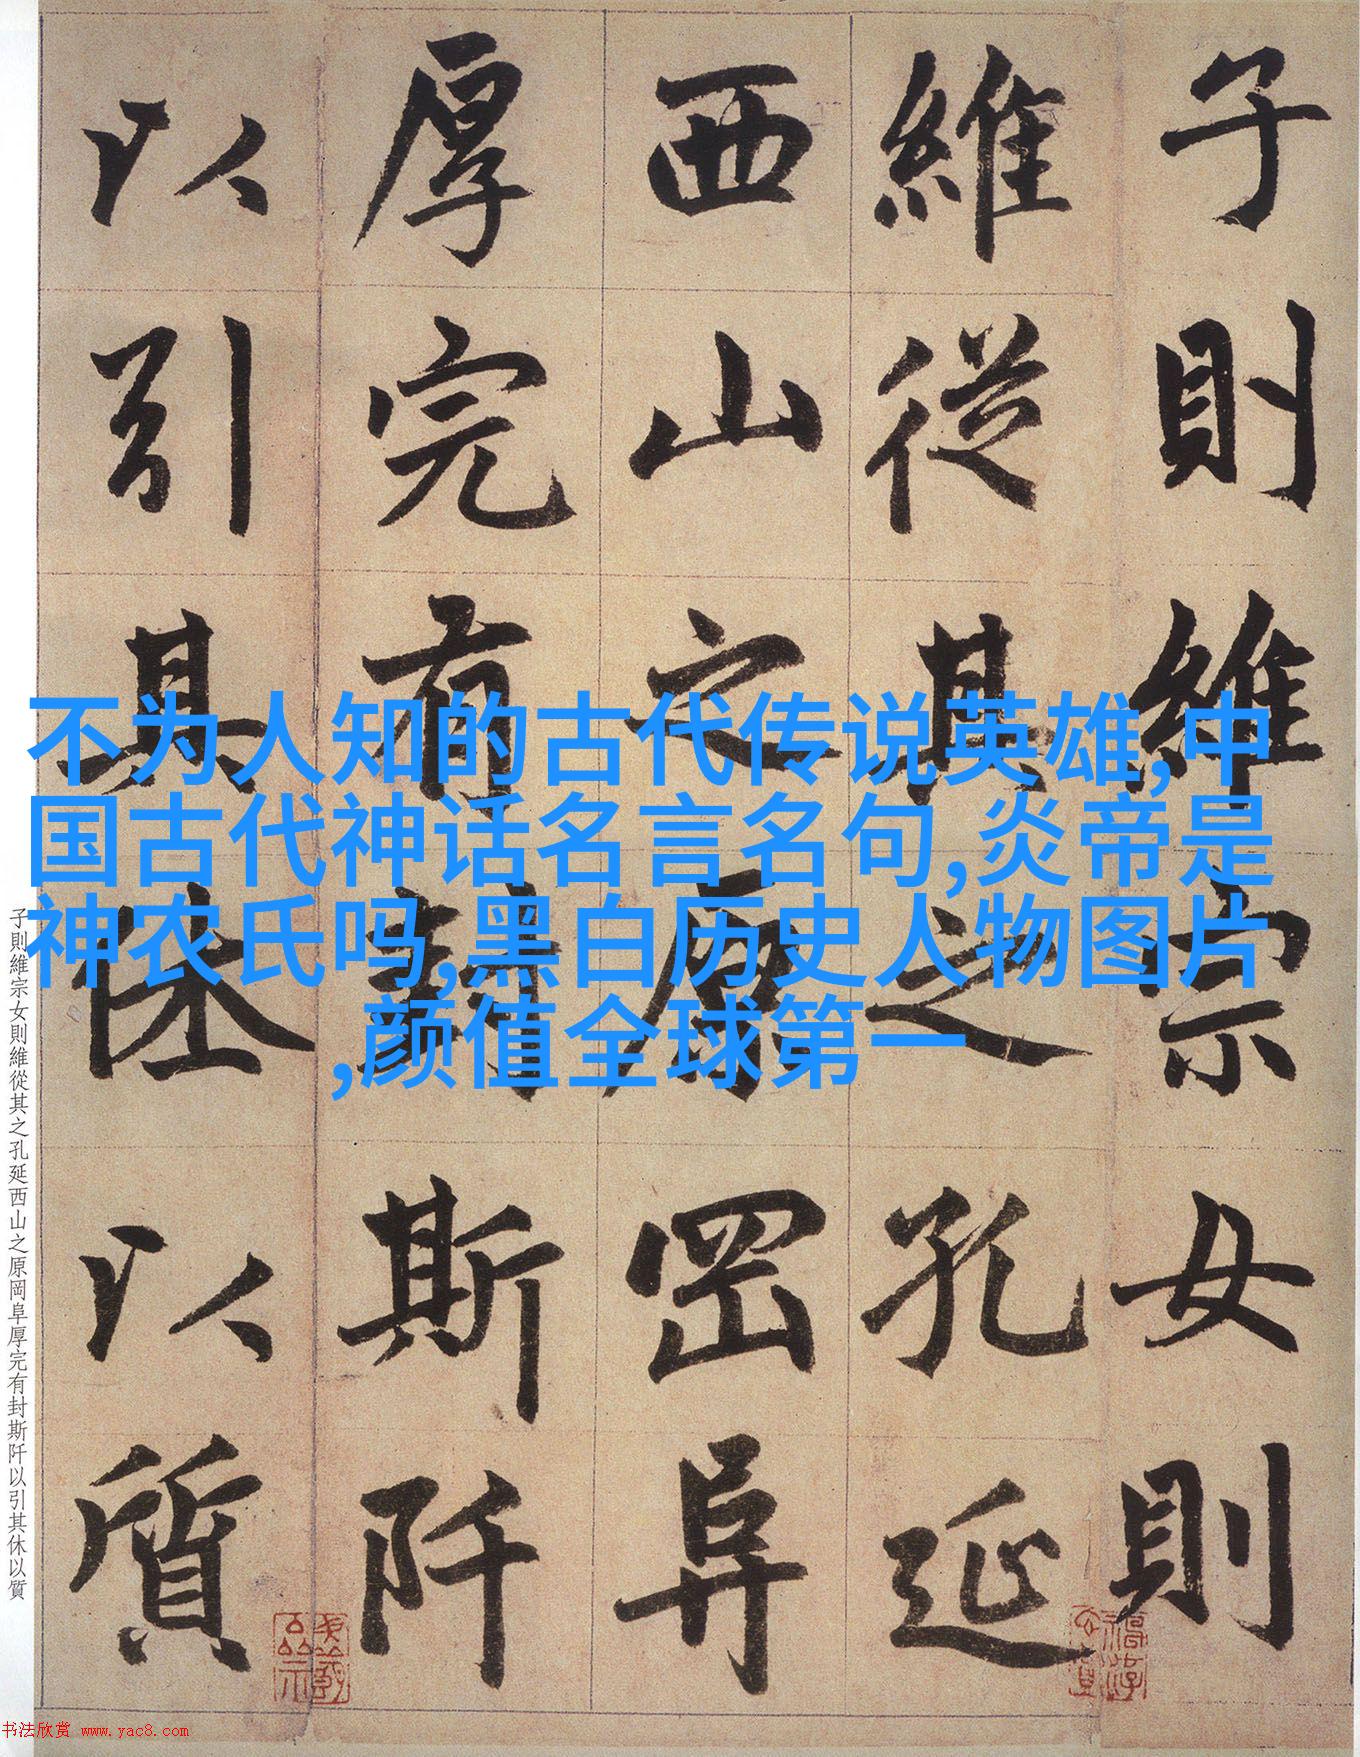 子則維宗女則
維從其之孔延
西山之原岡阜
厚完有封斯阡
以引其休以質
不为人知的古代传说英雄,中
国古代神话名言名句,炎帝是
神农氏吗,黑白历史人物图片
,颜值全球第一
子則維宗女則維從其之孔延西山之原岡阜厚完有封斯阡以引其休以質
书法欣赏 www.yac8.com